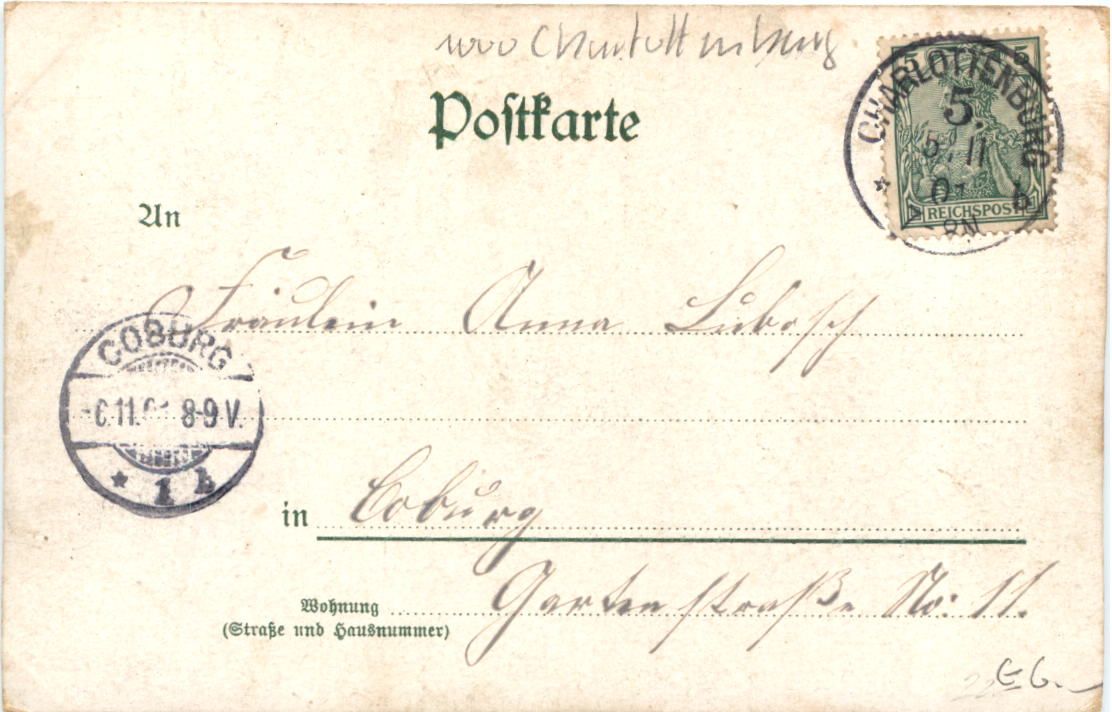 Charlottenburg
Postkarte
5 5
CHARLOTTENBURG
5.
5. 11
8N
b
REICHSPOST
An
Fräulein Anna Lubosch
COBURG
6.11.01 8-9 V.
* 1 b
in Coburg
Wohnung Gartenstraße No: 11.
(Straße und Hausnummer)